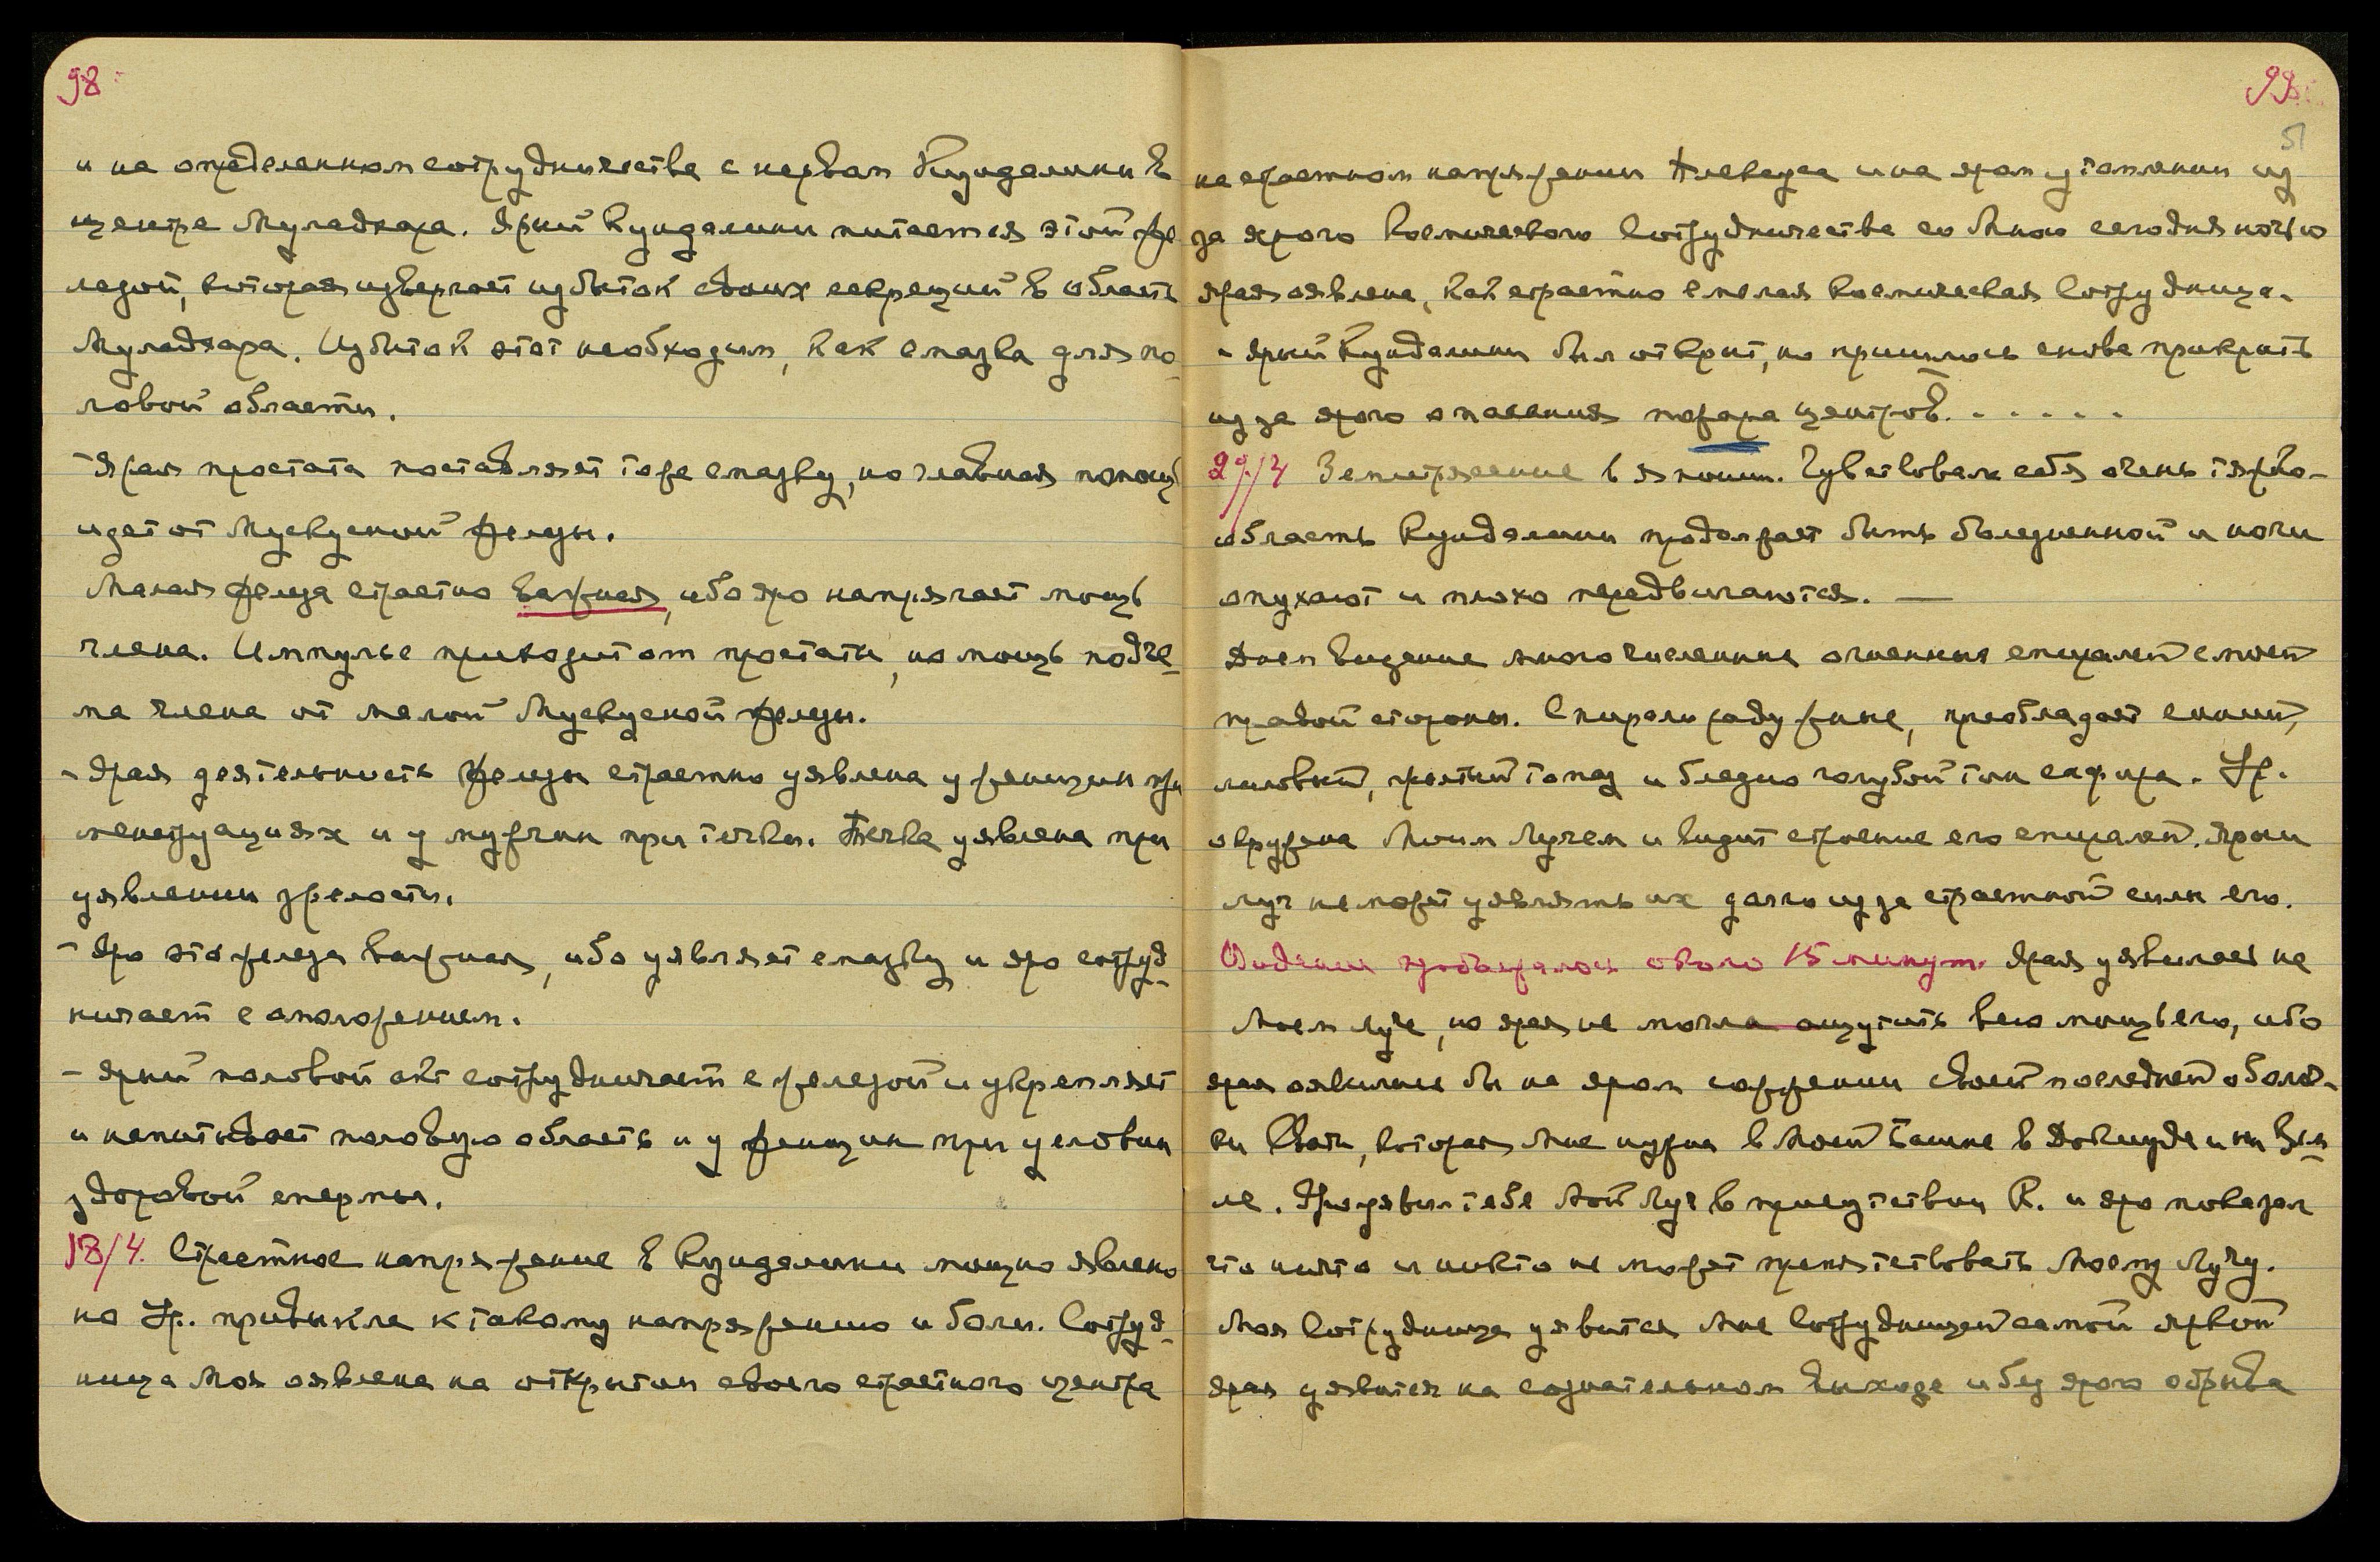 98
и на определенном сотрудничестве с нервом Кундалини в
центре Муладхара. Ярый Кундалини питается этой же
лезой, которая извергает избыток своих секреций в область
Муладхара. Избыток этот необходим, как смазка для по-
ловой области.
- Ярая простата поставляет тоже смазку, но главная помощь
идет от Мускусной железы.
Малая железа страстно важная, ибо яро напрягает мощь
члена. Импульс приходит от простаты, но мощь подъе-
ма члена от малой Мускусной железы.
- Ярая деятельность железы страстно уявлена у женщин при
менструациях и у мужчин при течки. Течка уявлена при
уявлении зрелости.
- Яро эта железа важная, ибо уявляет смазку и яро сотруд-
ничает с омоложением.
- Ярый половой акт сотрудничает с железой и укрепляет
и напитывает половую область и у женщин при условии
здоровой спермы.
18/4. Страстное напряжение в Кундалини мощно явлено
но Ур. привыкла к такому напряжению и боли. Сотруд-
ница Моя оявлена на открытии своего страстного центра
99
51
на страстном напряжении Плексуса и на яром утомлении из
за ярого Космического Сотрудничества со Мною сегодня ночью
ярая оявлена, как страстно смелая Космическая Сотрудница.
- Ярый Кундалини был открыт, но пришлось снова прикрыть
из за ярого опасения пожара центров. . . . . .
Землетрясение в Японии. Чувствовала себя очень тяжко-
область Кундалини продолжает быть болезненной и ноги
опухают и плохо передвигаются. —
Днем видение многочисленные огненные спиралей с моей
правой стороны. Спирали радужные, преобладает синий,
лиловый, желтый топаз и бледно голубой тон сафира. Ур.
окружена Моим Лучем и видит строение его спиралей. Ярый
луч не может уявлять их долго из за страстной силы его.
Видение продолжалось около 15 минут. Ярая уявилась на
Моем луче, но ярая не могла ощутить всю мощь его, ибо
ярая оявилась бы на яром сожжении своей последней оболоч-
ки Свати, которая Мне нужна в Моей Башне в Докиуде и на Зем-
ле. Яро явил тебе Мой Луч в присутствии К. и яро показал
что ничто и никто не может препятствовать Моему Лучу.
Моя Сотрудница уявится Мне Сотрудницей самой яркой
ярая уявится на сознательном выходе и без ярого обрыва